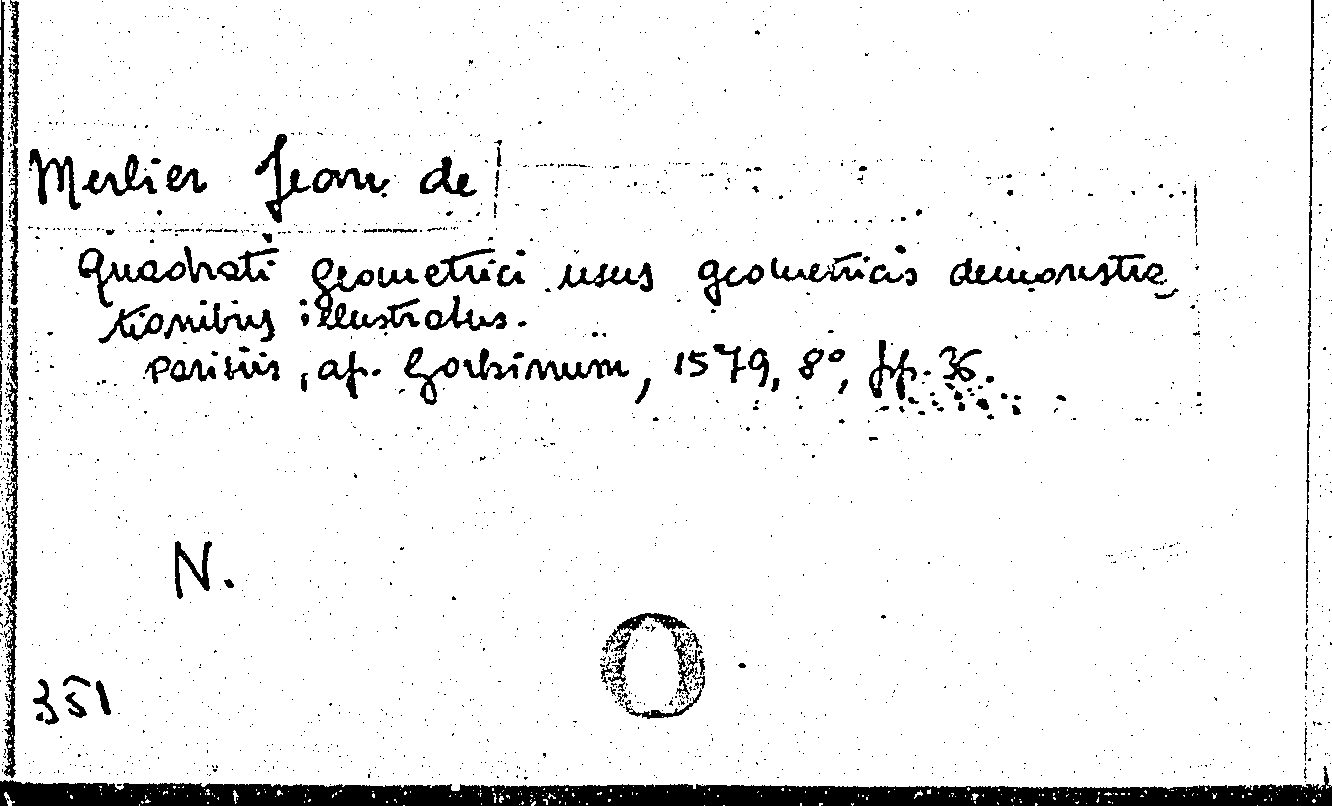 Merlier Jean de
Quadrati geometrici usus geometricis demonstra
tionibus illustratus.
Parisiis, ap. Gorbinum, 1579, 8°, pp. 36.
N.
351